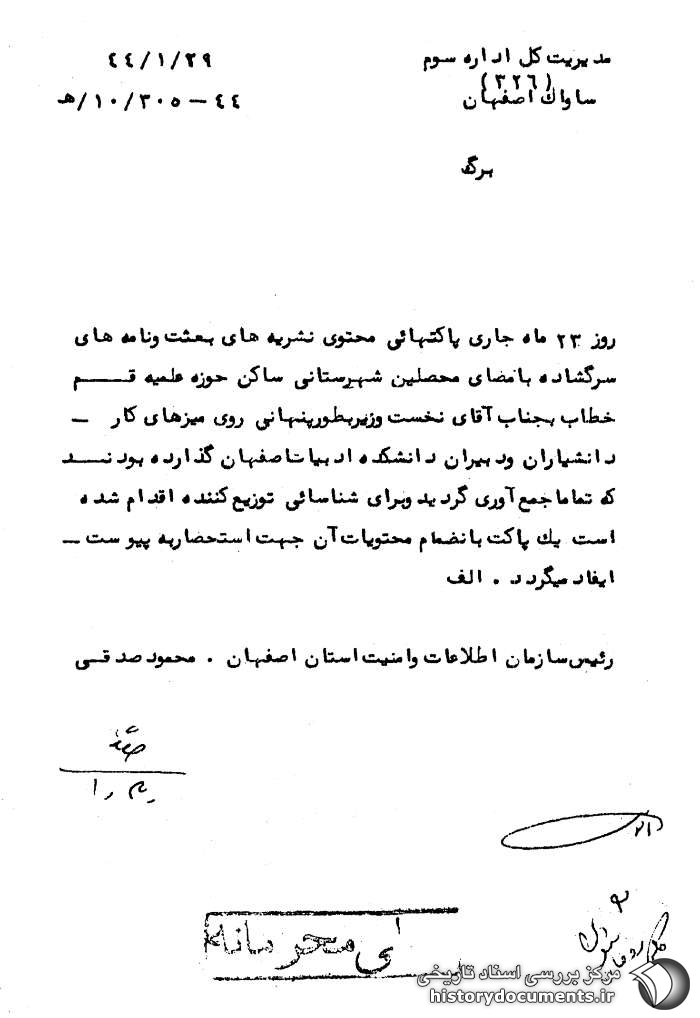 مدیریت کل اداره سوم
(۳۲۶)
ساواک اصفهان
۴۴/۱/۲۹
۴۴ – ۳۰۵/۱۰/ه‍
برگ
روز ۲۳ ماه جاری پاکتهائی محتوی نشریه های بعثت ونامه های
سرگشاده بامضای محصلین شهرستانی ساکن حوزه علمیه قــم
خطاب بجناب آقای نخست وزیربطورپنهانی روی میزهای کار –
دانشیاران ودبیران دانشکده ادبیات اصفهان گذارده بودنــد
که تماما جمع آوری گردید وبرای شناسائی توزیع کننده اقدام شده
است یک پاکت بانضمام محتویات آن جهت استحضاربه پیوست –
ایفاد میگردد . الف
رئیس سازمان اطلاعات وامنیت استان اصفهان . محمود صدقی
محرمانه
مرکز بررسی اسناد تاریخی
historydocuments.ir